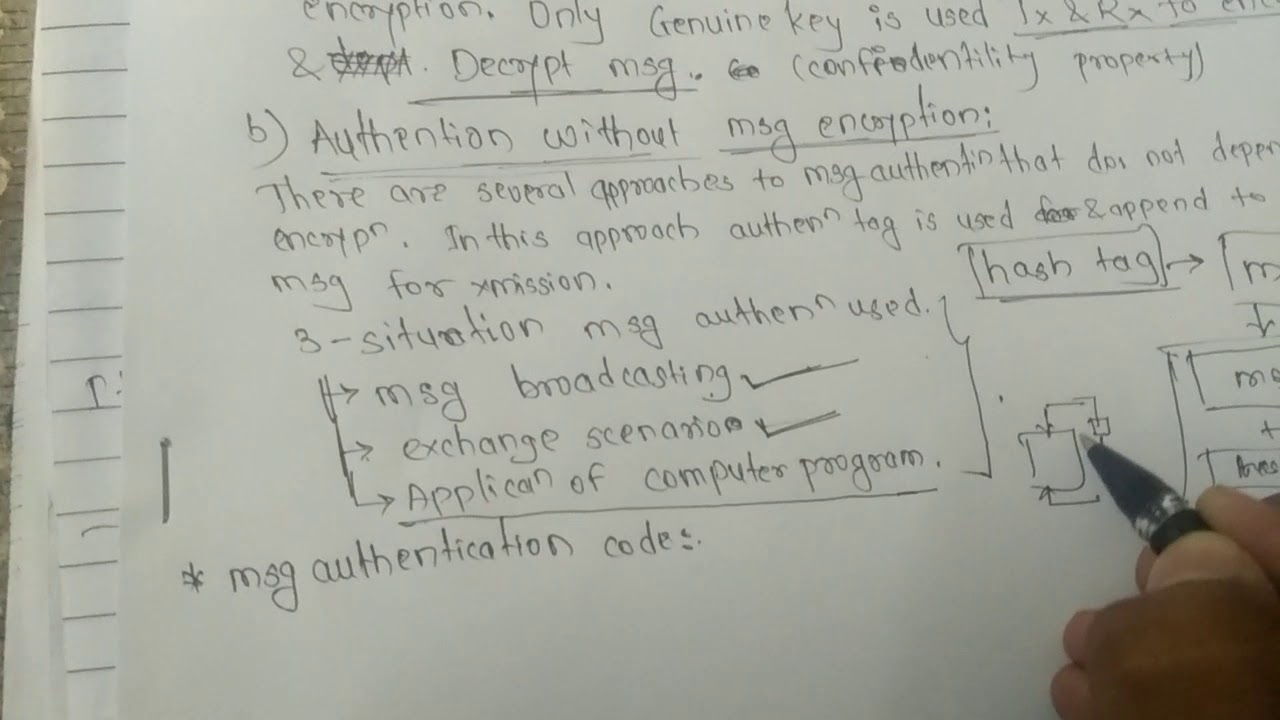 encryption. Only Genuine key is used Tx & Rx to
& Decrypt msg. (confedentility property)
b) Authention without msg encryption:
There are several approaches to msg authentin that dos not depen
encrypn. In this approach authenn tag is used & append to
msg for xmission.
hash tag → m
3-situation msg authenn used.
→ msg broadcasting
→ exchange scenario
→ Applican of computer program.
+
* msg authentication code: